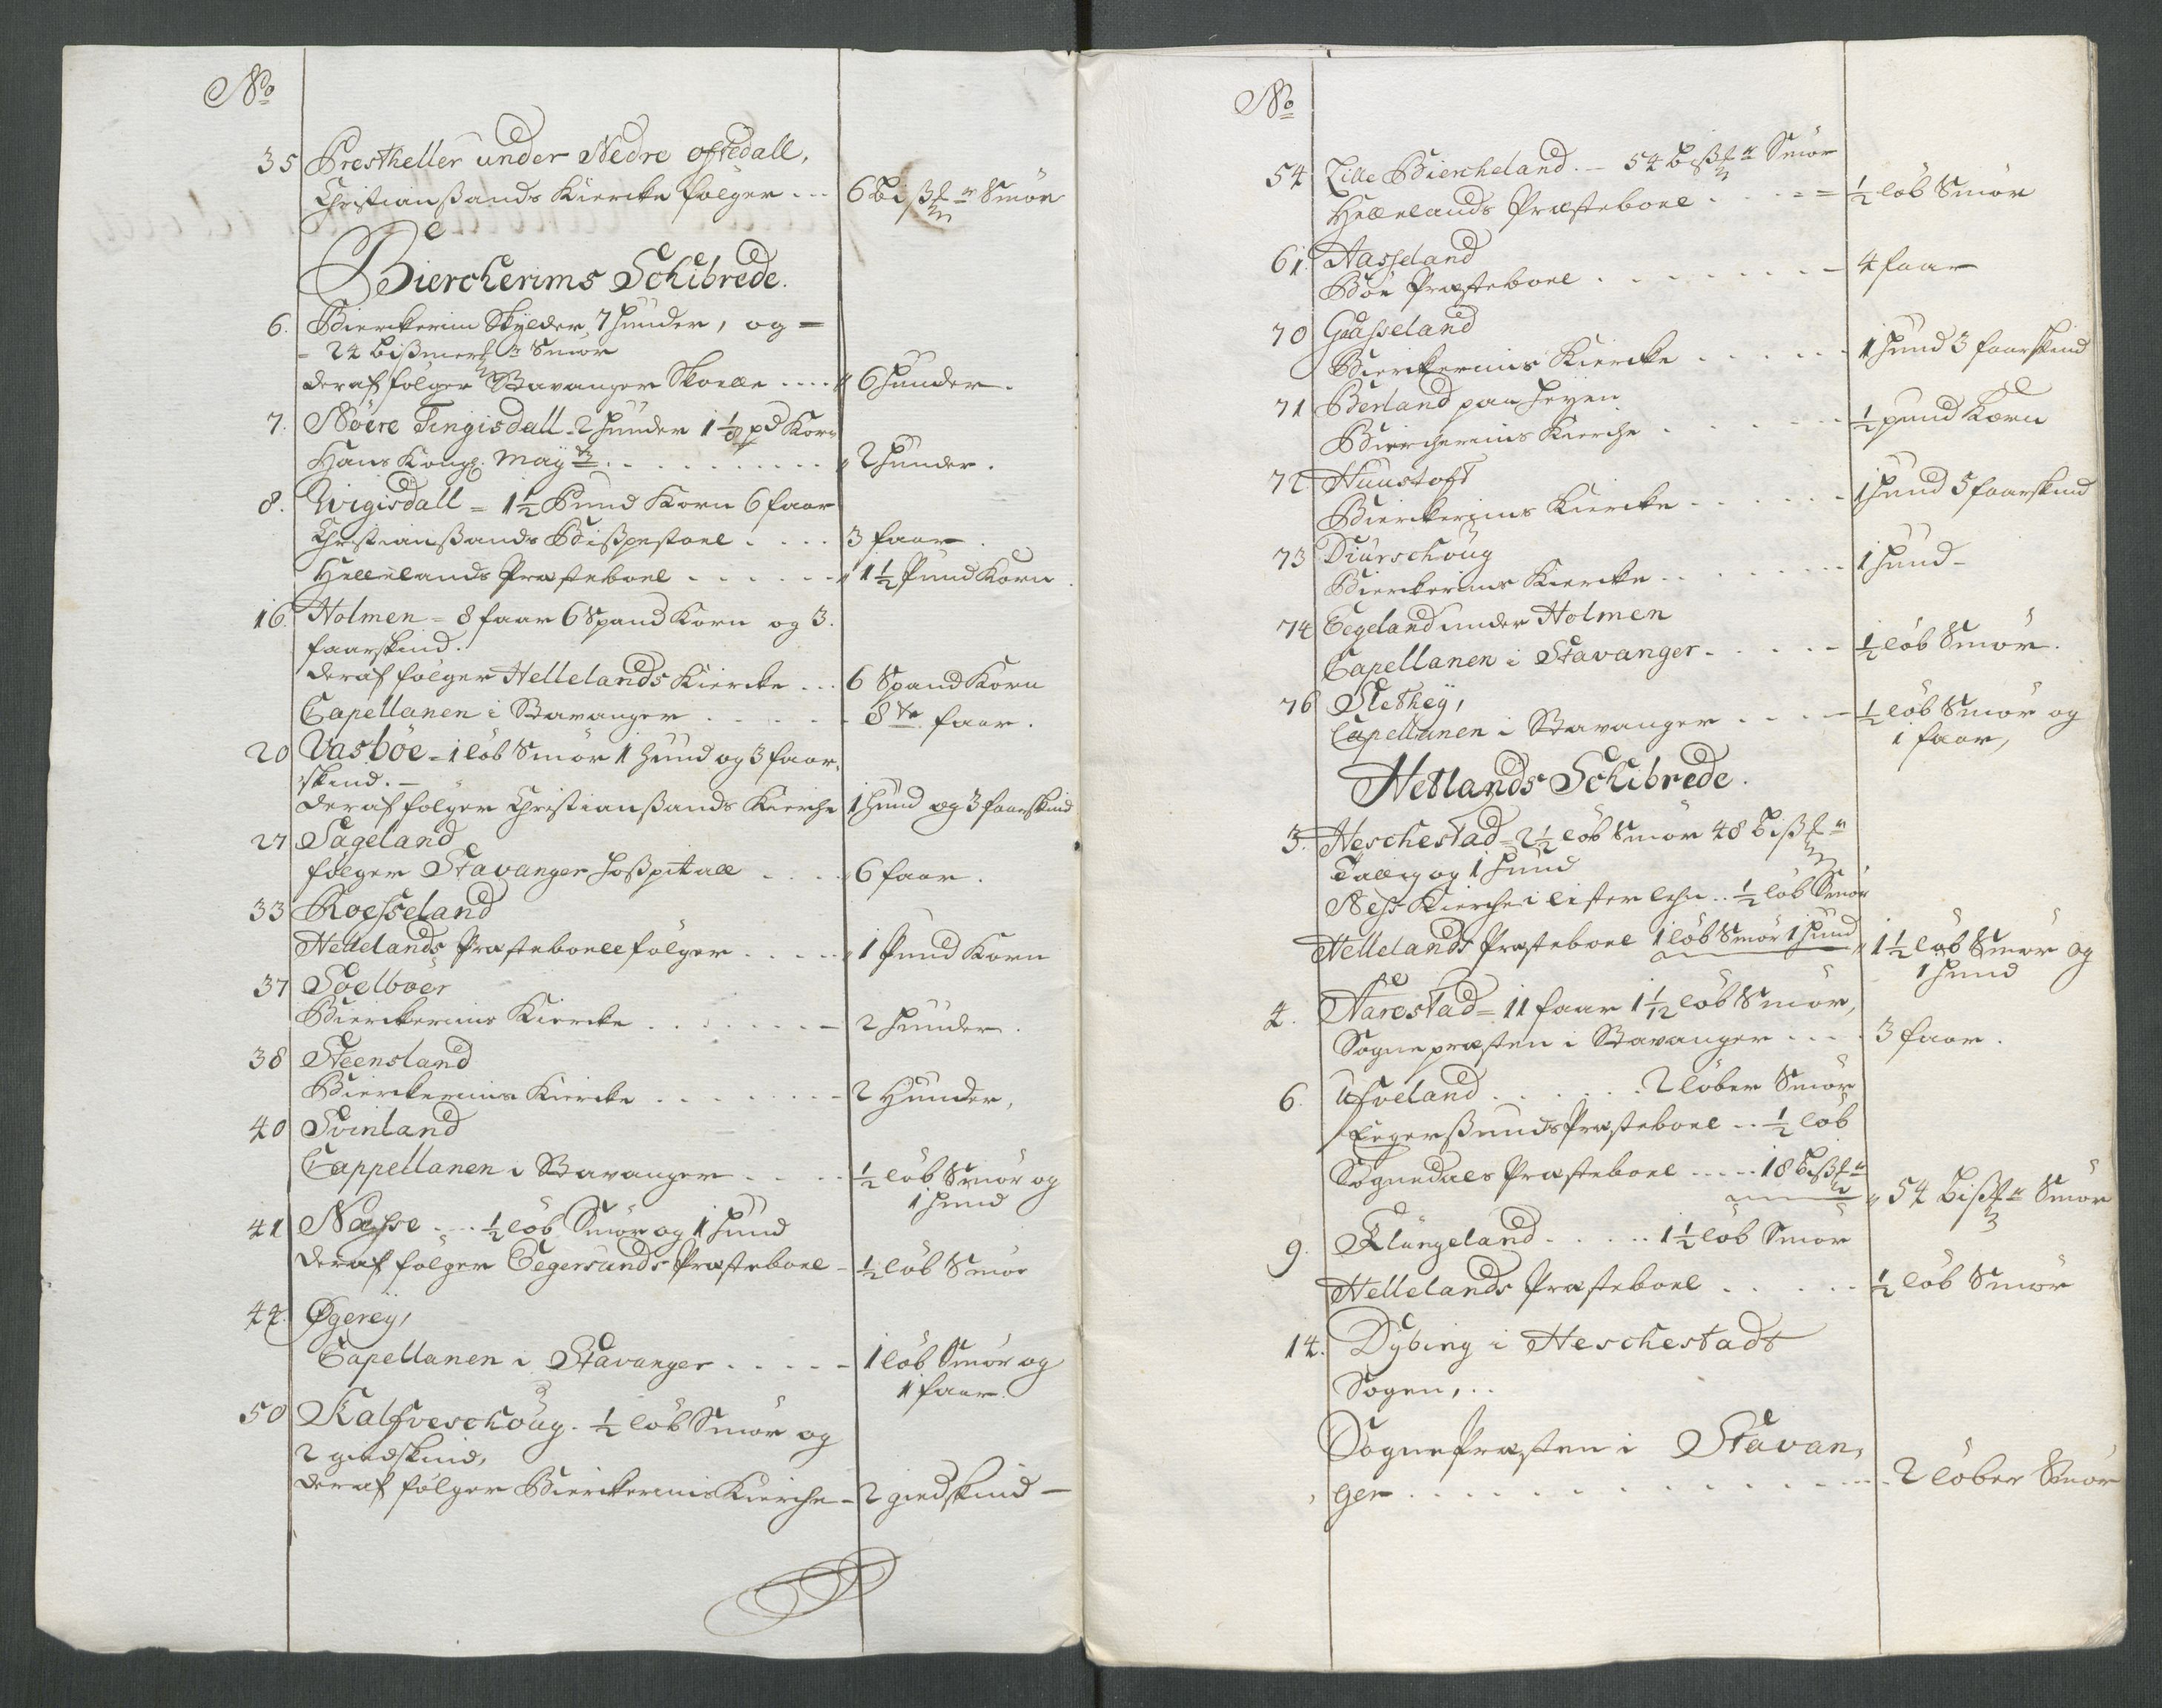 No
35 Prestheller under Nedre ofstedall,
Christiansands Kiercke følger ... 6 bißmr Smör
Biercherims Schibrede.
6. Bierckerim Skylder, 7 huuder, og =
= 24 bißmerkr Smör
deraf følger Stavanger Skoele .... 6 huuder.
7. Nöere Tingisdall - 2 huuder 1 1/8 pd Korn
Hans Kongl. Mayts .......... 2 huuder.
8. Wigisdall = 1 1/2 Pund Korn 6 faar
Christiansands Bißpestoel .... 3 faar.
Hellelands Præsteboel ...... 1 1/2 Pund Korn.
16. Holmen = 8 faar 6 Spand Korn og 3.
faarskind.
deraf følger Hellelands Kiercke ... 6 Spand Korn
Capellanen i Stavanger ..... 8te faar.
20 Vasböe - 1 löb Smör 1 Huud og 3 faar,
skind. -
deraf følger Christiansands Kierche 1 huud og 3 faarskind
27 Sageland
følger Stavanger Hoßpitall .... 6 faar.
33 Roesseland
Hellelands Præsteboell følger ..... 1 Pund Korn
37 Soelboer
Bierckerims Kiercke ........ 2 huuder.
38 Steensland
Bierckerims Kiercke ........ 2 Huuder,
40 Svinland
Cappellanen i Stavanger .... 1/2 löb Smör og
1 huud
41 Næsse .... 1/2 löb Smör og 1 huud
deraf følger Eegersunds Præsteboel - 1/2 löb Smör
44. Øgereÿ,
Capellanen i Stavanger ..... 1 löb Smör og
1 faar.
50 Kalfveschoug. 1/2 löb Smör og
2 giedskind,
deraf følger Bierckerims Kierche - 2 giedskind -
No
54 Lille Biercheland. - 54 bißmr Smör
Hellelands Præsteboel ..... 1/2 löb Smör
61. Aasseland
Böe Præsteboel ........ 4 faar
70 Gaasseland
Bierckerims Kiercke ...... 1 huud 3 faarskind
71 Berland paa Heyen
Biercherims Kierche ...... 1/2 pund Korn
72 Huustoft
Bierckerims Kiercke ...... 1 huud 5 faarskind
73 Diurschoug
Bierckerims Kiercke ....... 1 huud -
74 Eegeland under Holmen
Capellanen i Stavanger ..... 1/2 löb Smör.
76 Sletheÿ,
Capellanen i Stavanger .... 1/2 löb Smör og
1 faar,
Hetlands Schibrede.
3. Heschestad = 2 1/2 löb Smör 48 bißmr
Tallig og 1 huud
Neß Kierche i lister lehn .. 1/2 löb Smör
Hellelands Præsteboel 1 löb Smör 1 huud 1 1/2 löb Smör og
1 huud
4. Aarestad = 11 faar 1 1/12 löb Smör,
Sognepræsten i Stavanger .... 3 faar.
6. Ufveland ...... 2 löber Smör
Eegerßunds Præsteboel .. 1/2 löb
Sognedals Præsteboel ..... 18 bißmr
54 bißmr Smör
9. Klungeland ..... 1 1/2 löb Smör
Hellelands Præsteboel ..... 1/2 löb Smör
14. Dybing i Heschestadt
Sogen, ..
Sogne Præsten i Stavan,
ger ............. 2 löber Smör